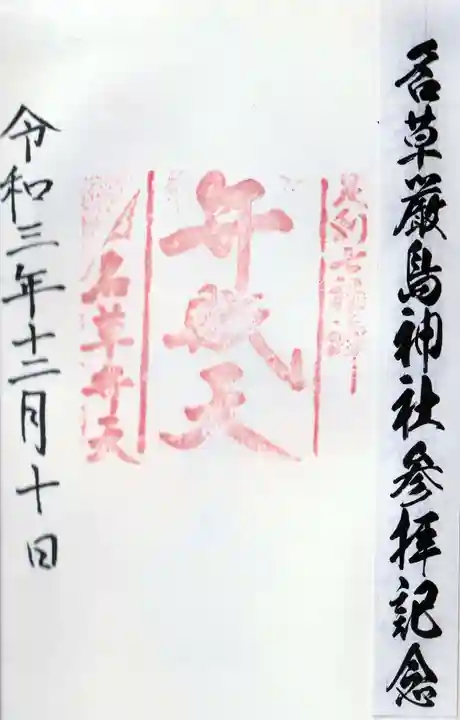 名草厳島神社参拝記念
足利七福神
弁財天
名草弁天
令和三年十二月十日